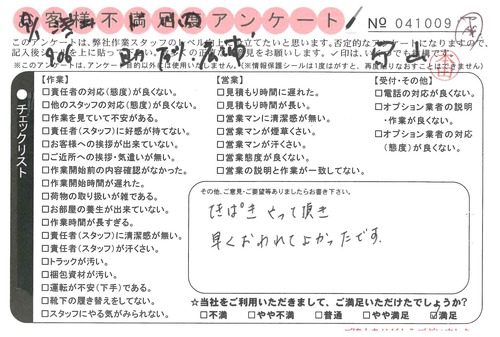 お客様不満回収アンケート
№ 041009
このアンケートは、弊社作業スタッフのレベル向上に役立てたいと思います。否定的なアンケートになりますので、
チェックリスト
【作業】
□責任者の対応(態度)が良くない。
□他のスタッフの対応(態度)が良くない。
□作業を見ていて不安がある。
□責任者(スタッフ)に好感が持てない。
□お客様への挨拶が出来ていない。
□ご近所への挨拶・気遣いが無い。
□作業開始前の内容確認がなかった。
□作業開始時間が遅れた。
□荷物の取り扱いが雑である。
□お部屋の養生が出来ていない。
□作業時間が長すぎる。
□責任者(スタッフ)に清潔感が無い。
□責任者(スタッフ)が汗くさい。
□トラックが汚い。
□梱包資材が汚い。
□運転が不安(下手)である。
□靴下の履き替えをしてない。
□スタッフにやる気がみられない。
【営業】
□見積もり時間に遅れた。
□見積もり時間が長い。
□営業マンに清潔感が無い。
□営業マンが煙草くさい。
□営業マンが汗くさい。
□営業態度が良くない。
□営業の説明と作業が一致してない。
【受付・その他】
□電話の対応が良くない。
□オプション業者の説明
・作業が良くない。
□オプション業者の対応
(態度)が良くない。
その他、ご意見・ご要望等ありましたらお書き下さい。
てきぱき やって頂き
早くおわれてよかったです。
☆当社をご利用いただきまして、ご満足いただけたでしょうか?
□不満 □やや不満 □普通 □やや満足 ☑満足